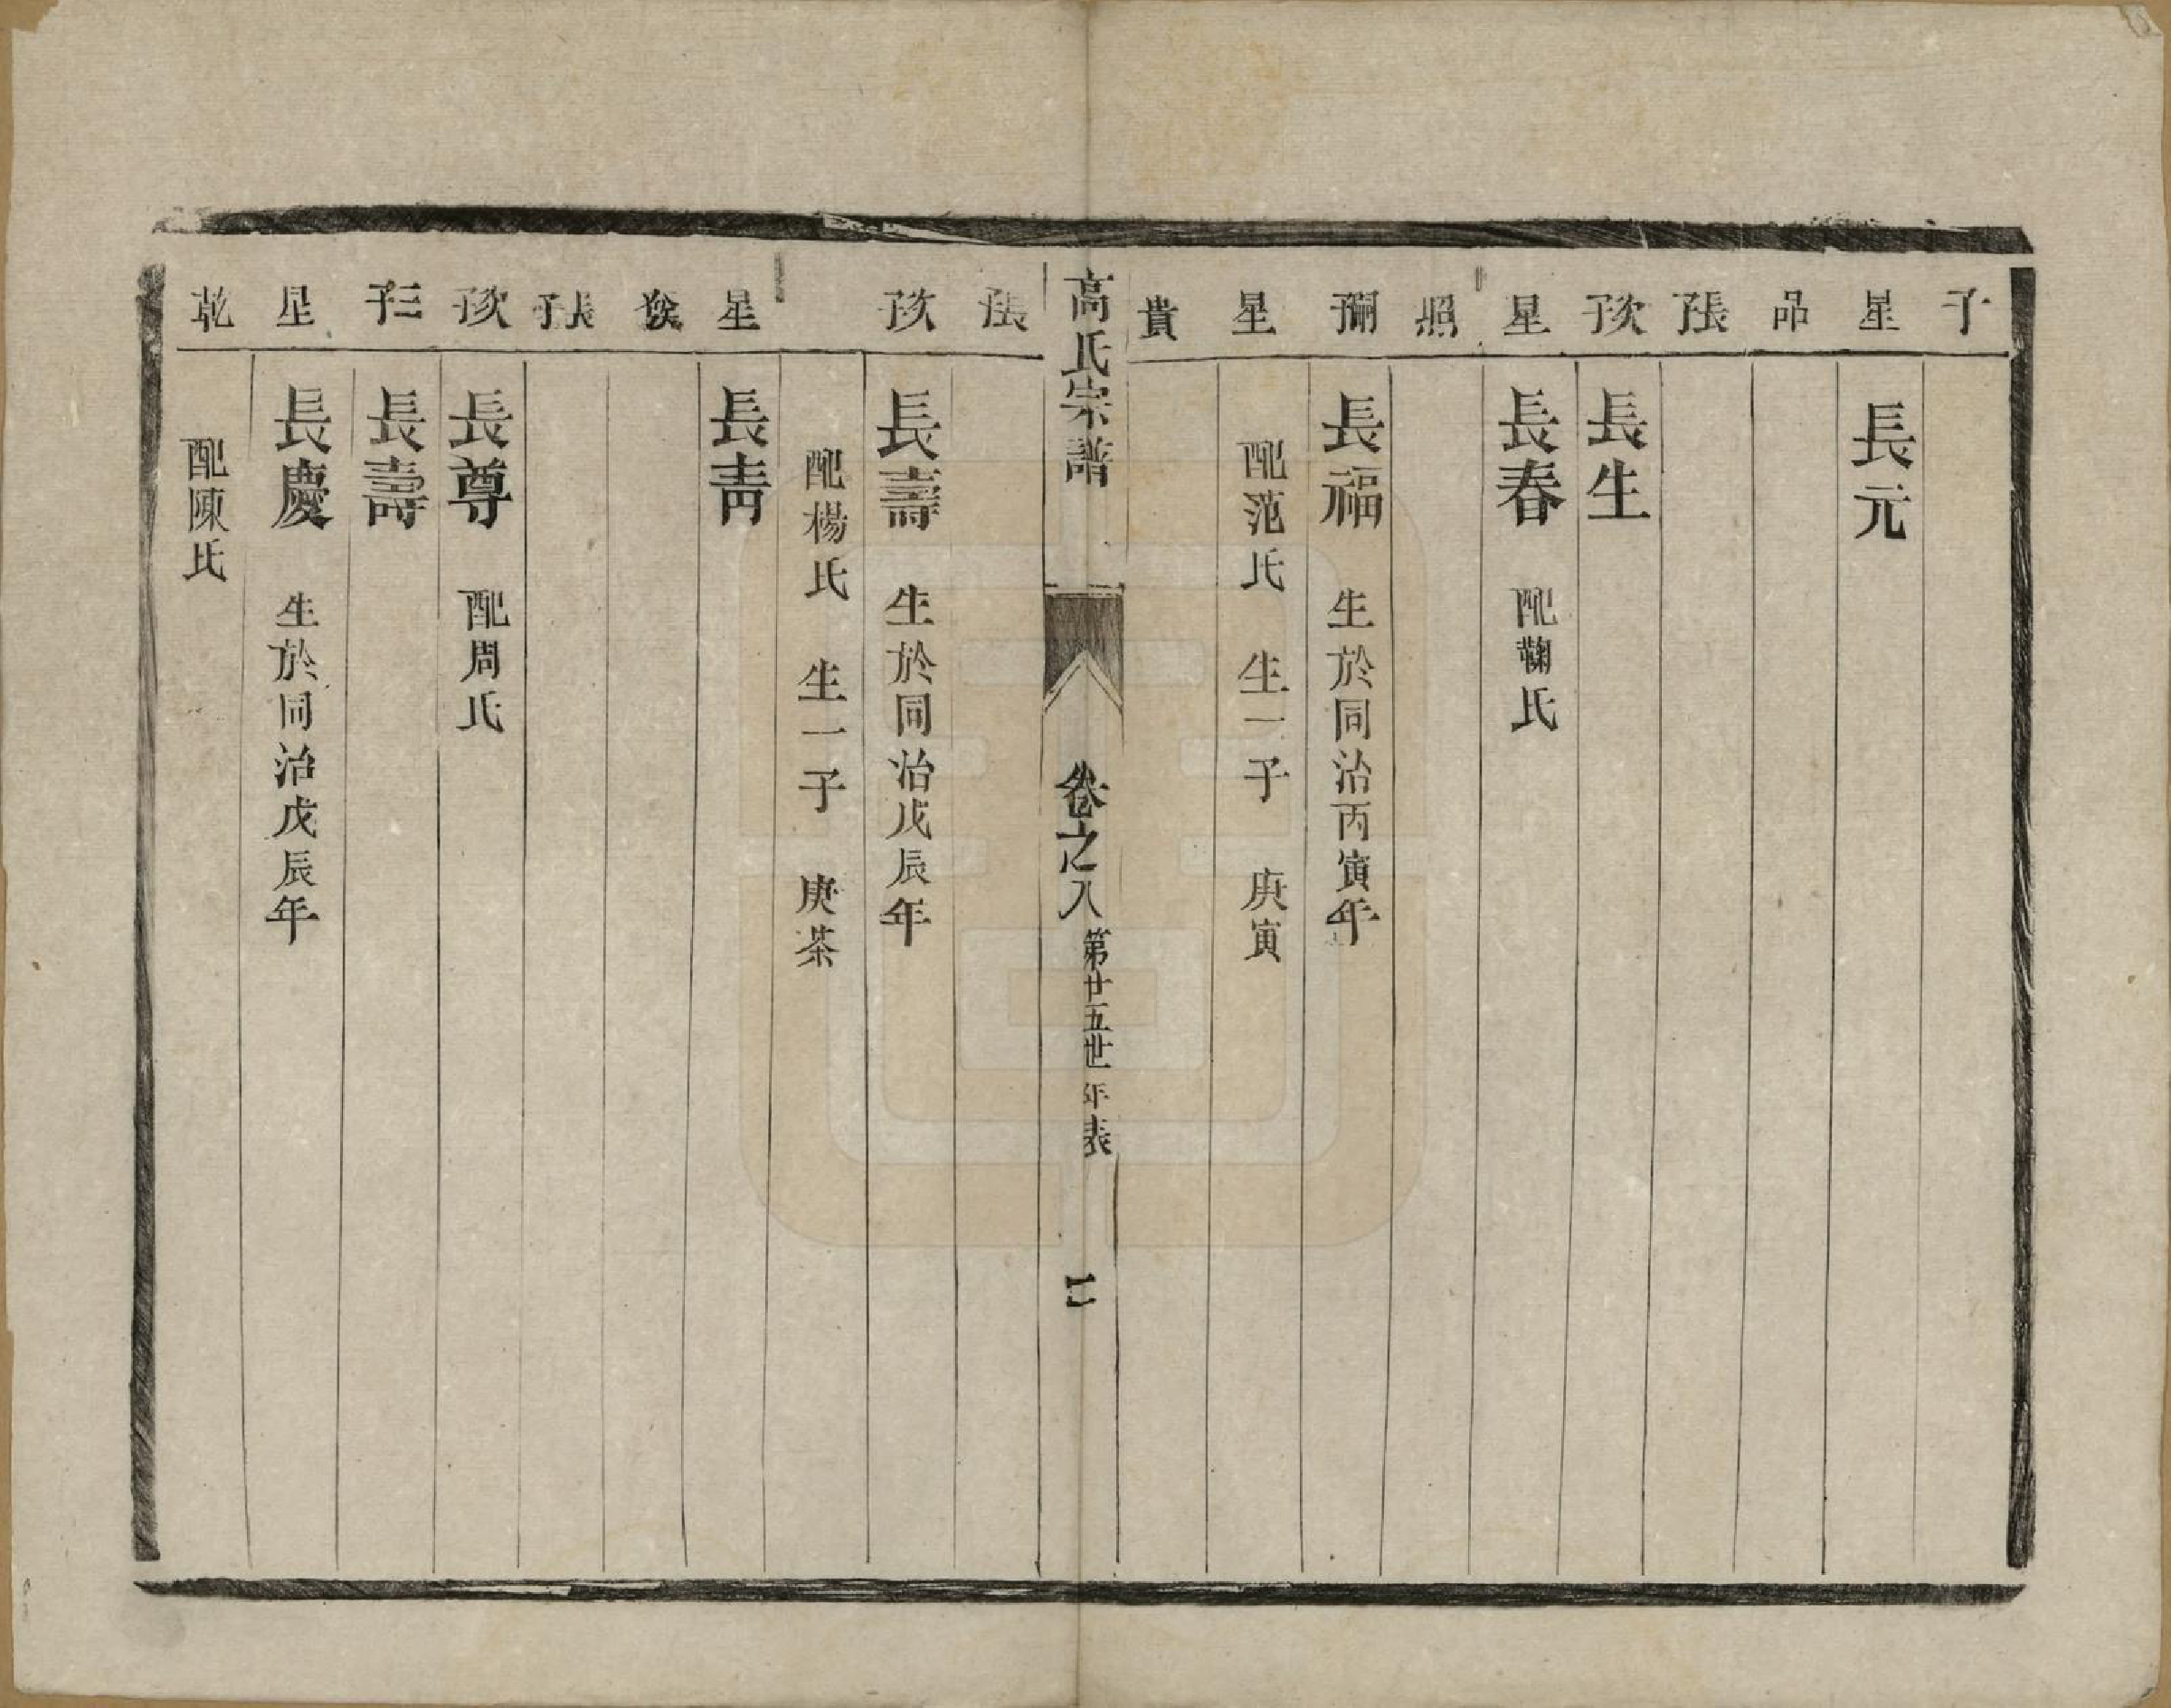 子
星 長元
品
張子
次子 長生
星 長春 配鞠氏
照
嗣子 長福 生於同治丙寅年
星 配范氏 生一子 庚寅
貴
高氏宗譜 卷之八 第廿五世年表 二
張子
次子 長壽 生於同治戊辰年
配楊氏 生一子 庚茶
星 長靑
張子
次子 長尊 配周氏
三子 長壽
星 長慶 生於同治戊辰年
乾 配陳氏